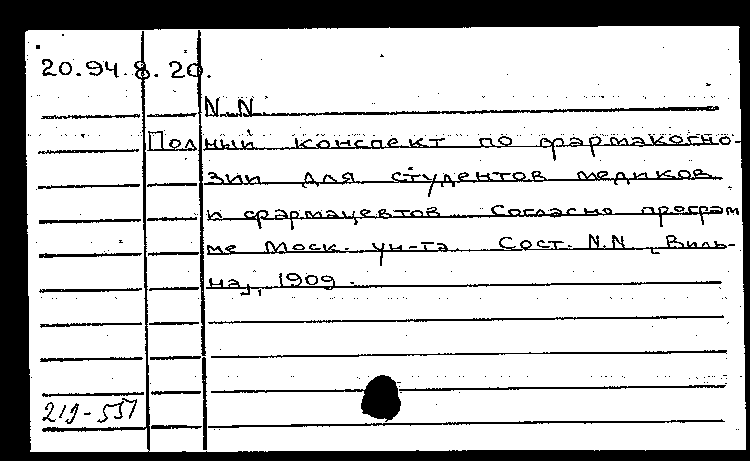 20.94.8.20.
N.N
Полный конспект по фармакогно-
зии для студентов медиков
и фармацевтов. Согласно програм
ме Моск. ун-та. Сост. N.N [Виль-
на], 1909.
219-551